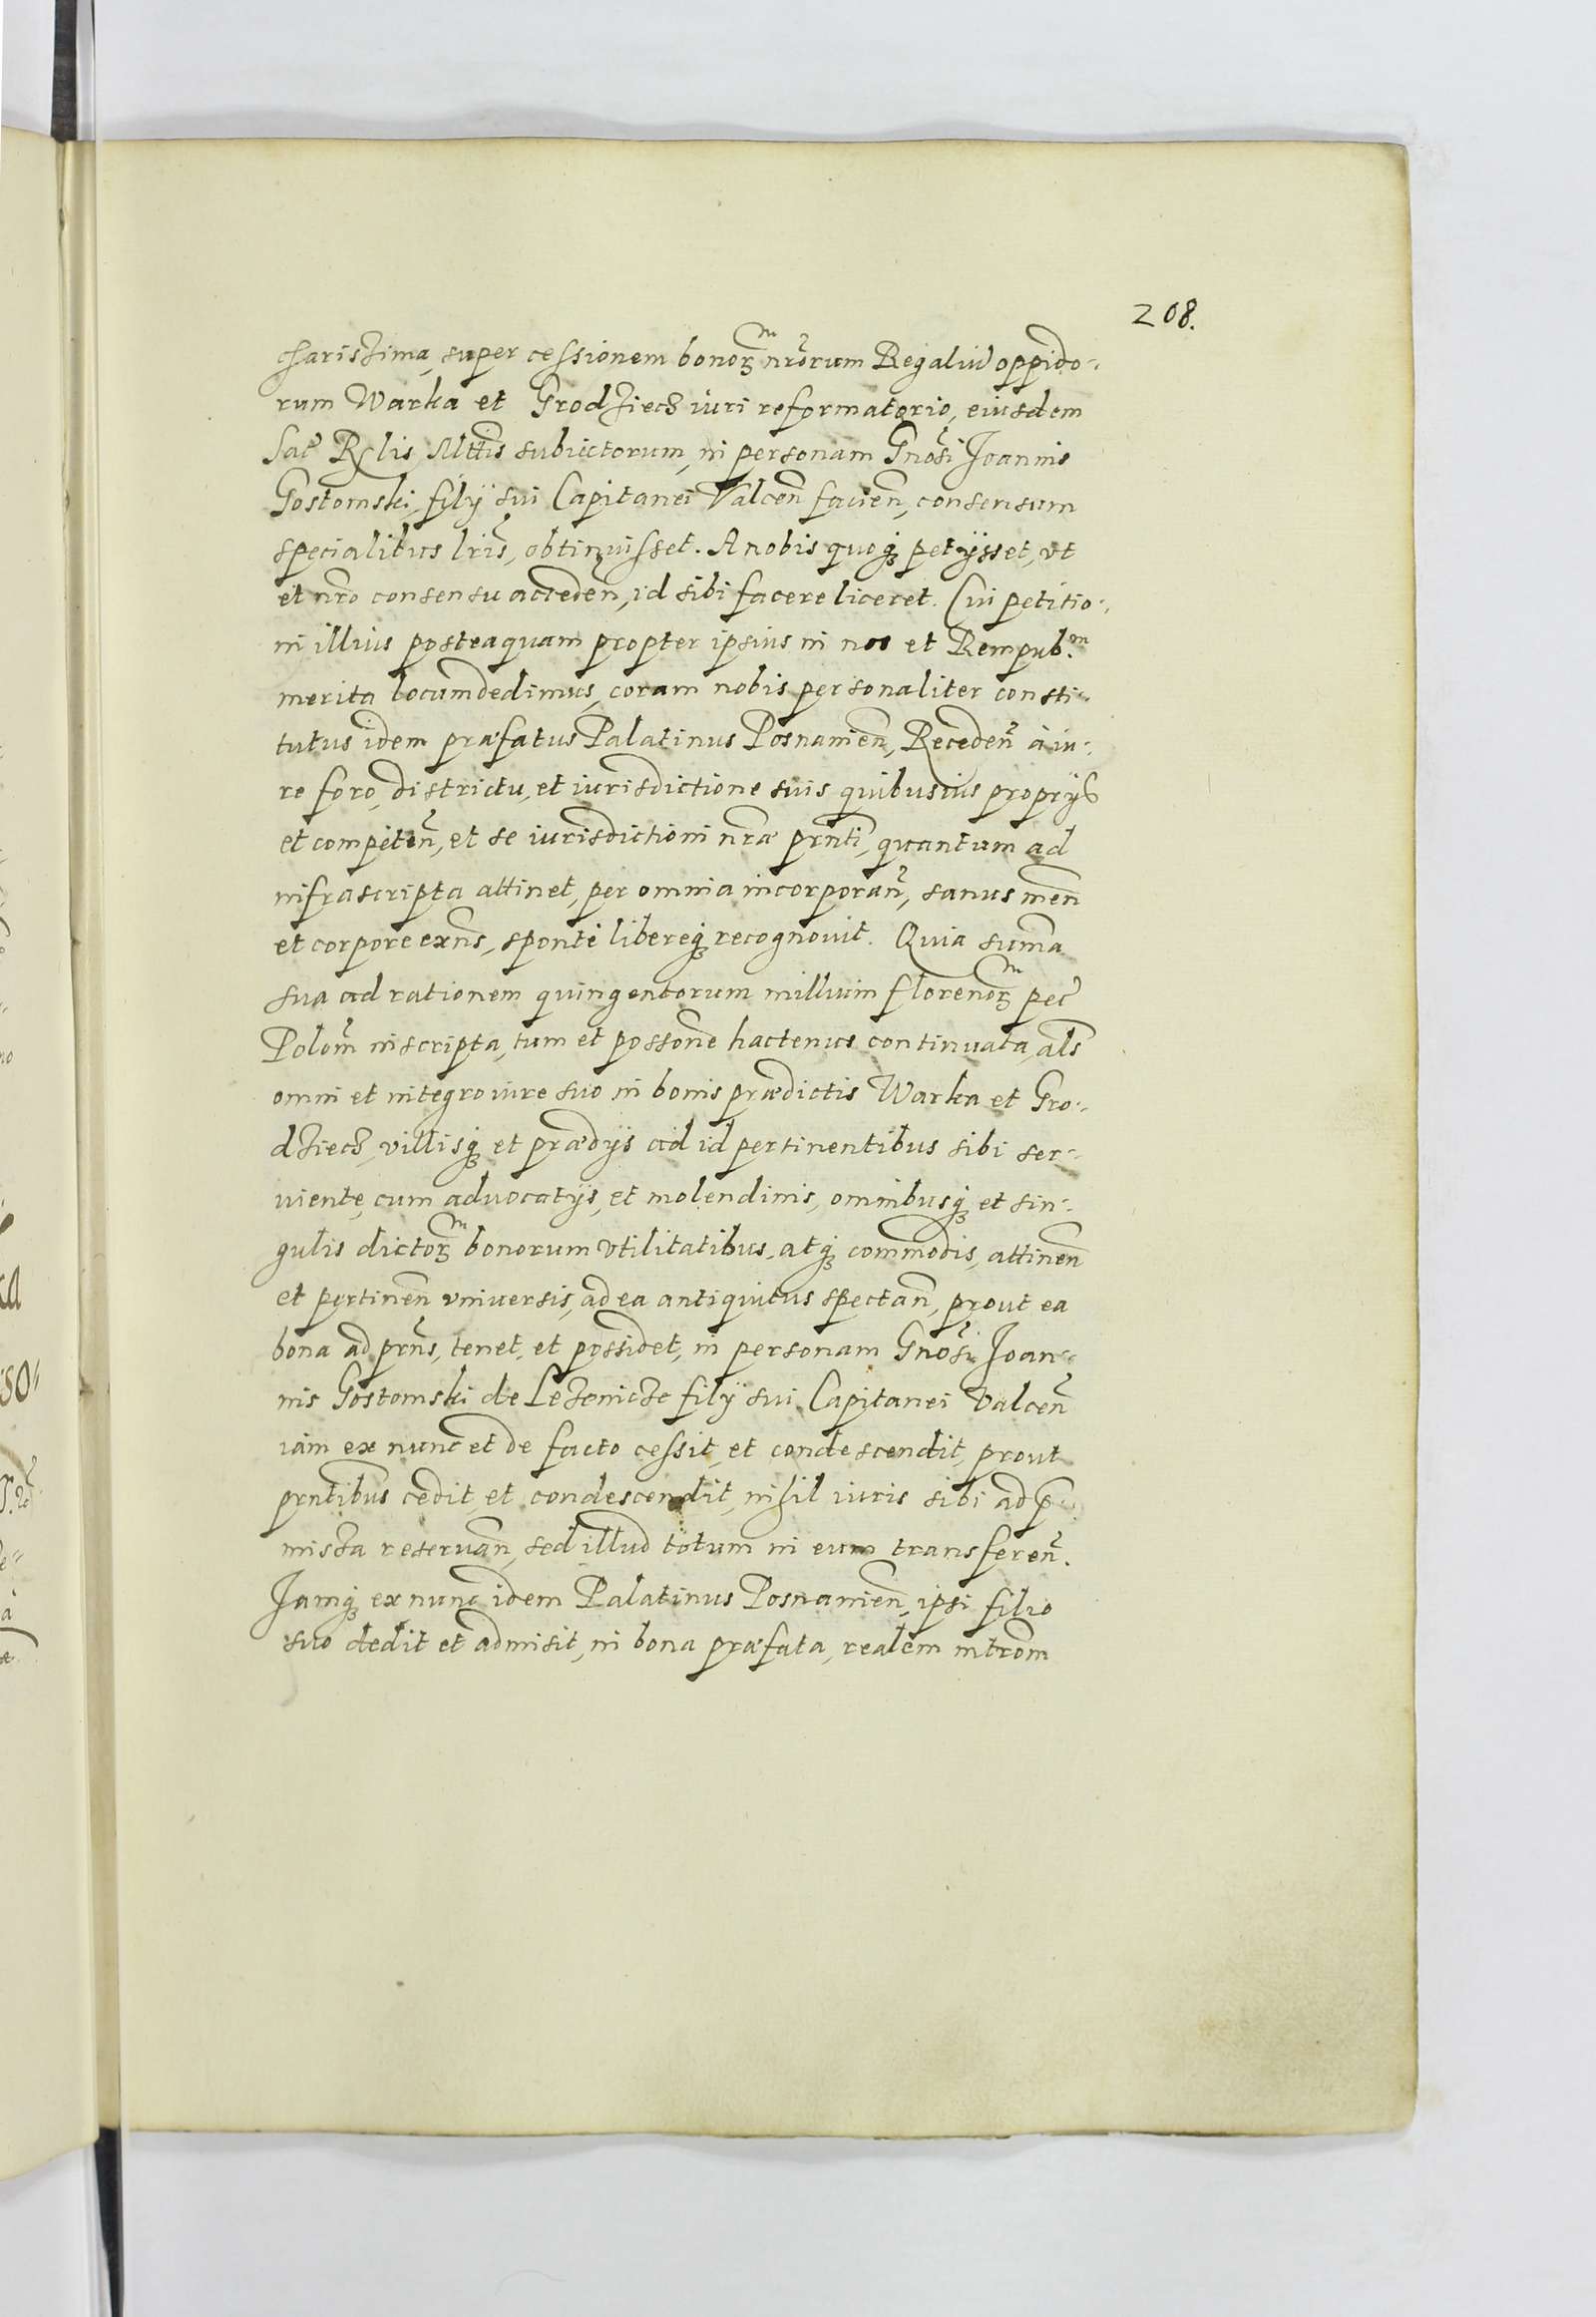 208.
charissima, super cessionem bonorum nrorum Regaliu oppido-
rum Warka et Grodziecz iuri reformatorio, eiusdem
Sac Rglis Mttis subiectorum, in personam Gnosi Joannis
Gostomski, filij sui Capitanei Valcen facien, consensum
specialibus lris, obtinuisset. A nobis quoq petijsset, vt
et nro consensu acceden, id sibi facere liceret. Cui petitio-
ni illius posteaquam propter ipsius in nos et Rempub.m
merita locum dedimus, coram nobis personaliter consti-
tutus idem præfatus Palatinus Posnanien, Receden à iu-
re foro, districtu, et iurisdictione suis quibusuis proprijs
et competen, et se iurisdictioni nræ prnti, quantum ad
infrascripta attinet, per omnia incorporan, sanus men
et corpore exns, sponte libereq recognouit. Quia summa
sua ad rationem quingentorum millium florenorm pec
Polon inscripta, tum et possone hactenus continuata, als
omni et integro iure suo in bonis prædictis Warka et Gro-
dziecz, villisq et prædijs ad id pertinentibus sibi ser-
uiente, cum aduocatijs, et molendinis, omnibusq et sin-
gulis dictorm bonorum vtilitatibus, atq commodis, attinen
et pertinen vniuersis, ad ea antiquitus spectan, prout ea
bona ad prns, tenet, et possidet, in personam Gnosi Joan-
nis Gostomski de Lezenicze filij sui Capitanei Valcen
iam ex nunc et de facto cessit, et condescendit, prout
prntibus cedit, et condescendit, nihil iuris sibi ad p-
missa reseruan, sed illud totum in eum transferen.
Jamq ex nunc idem Palatinus Posnanien, ipsi filio
suo dedit et admisit, in bona præfata, realem introm